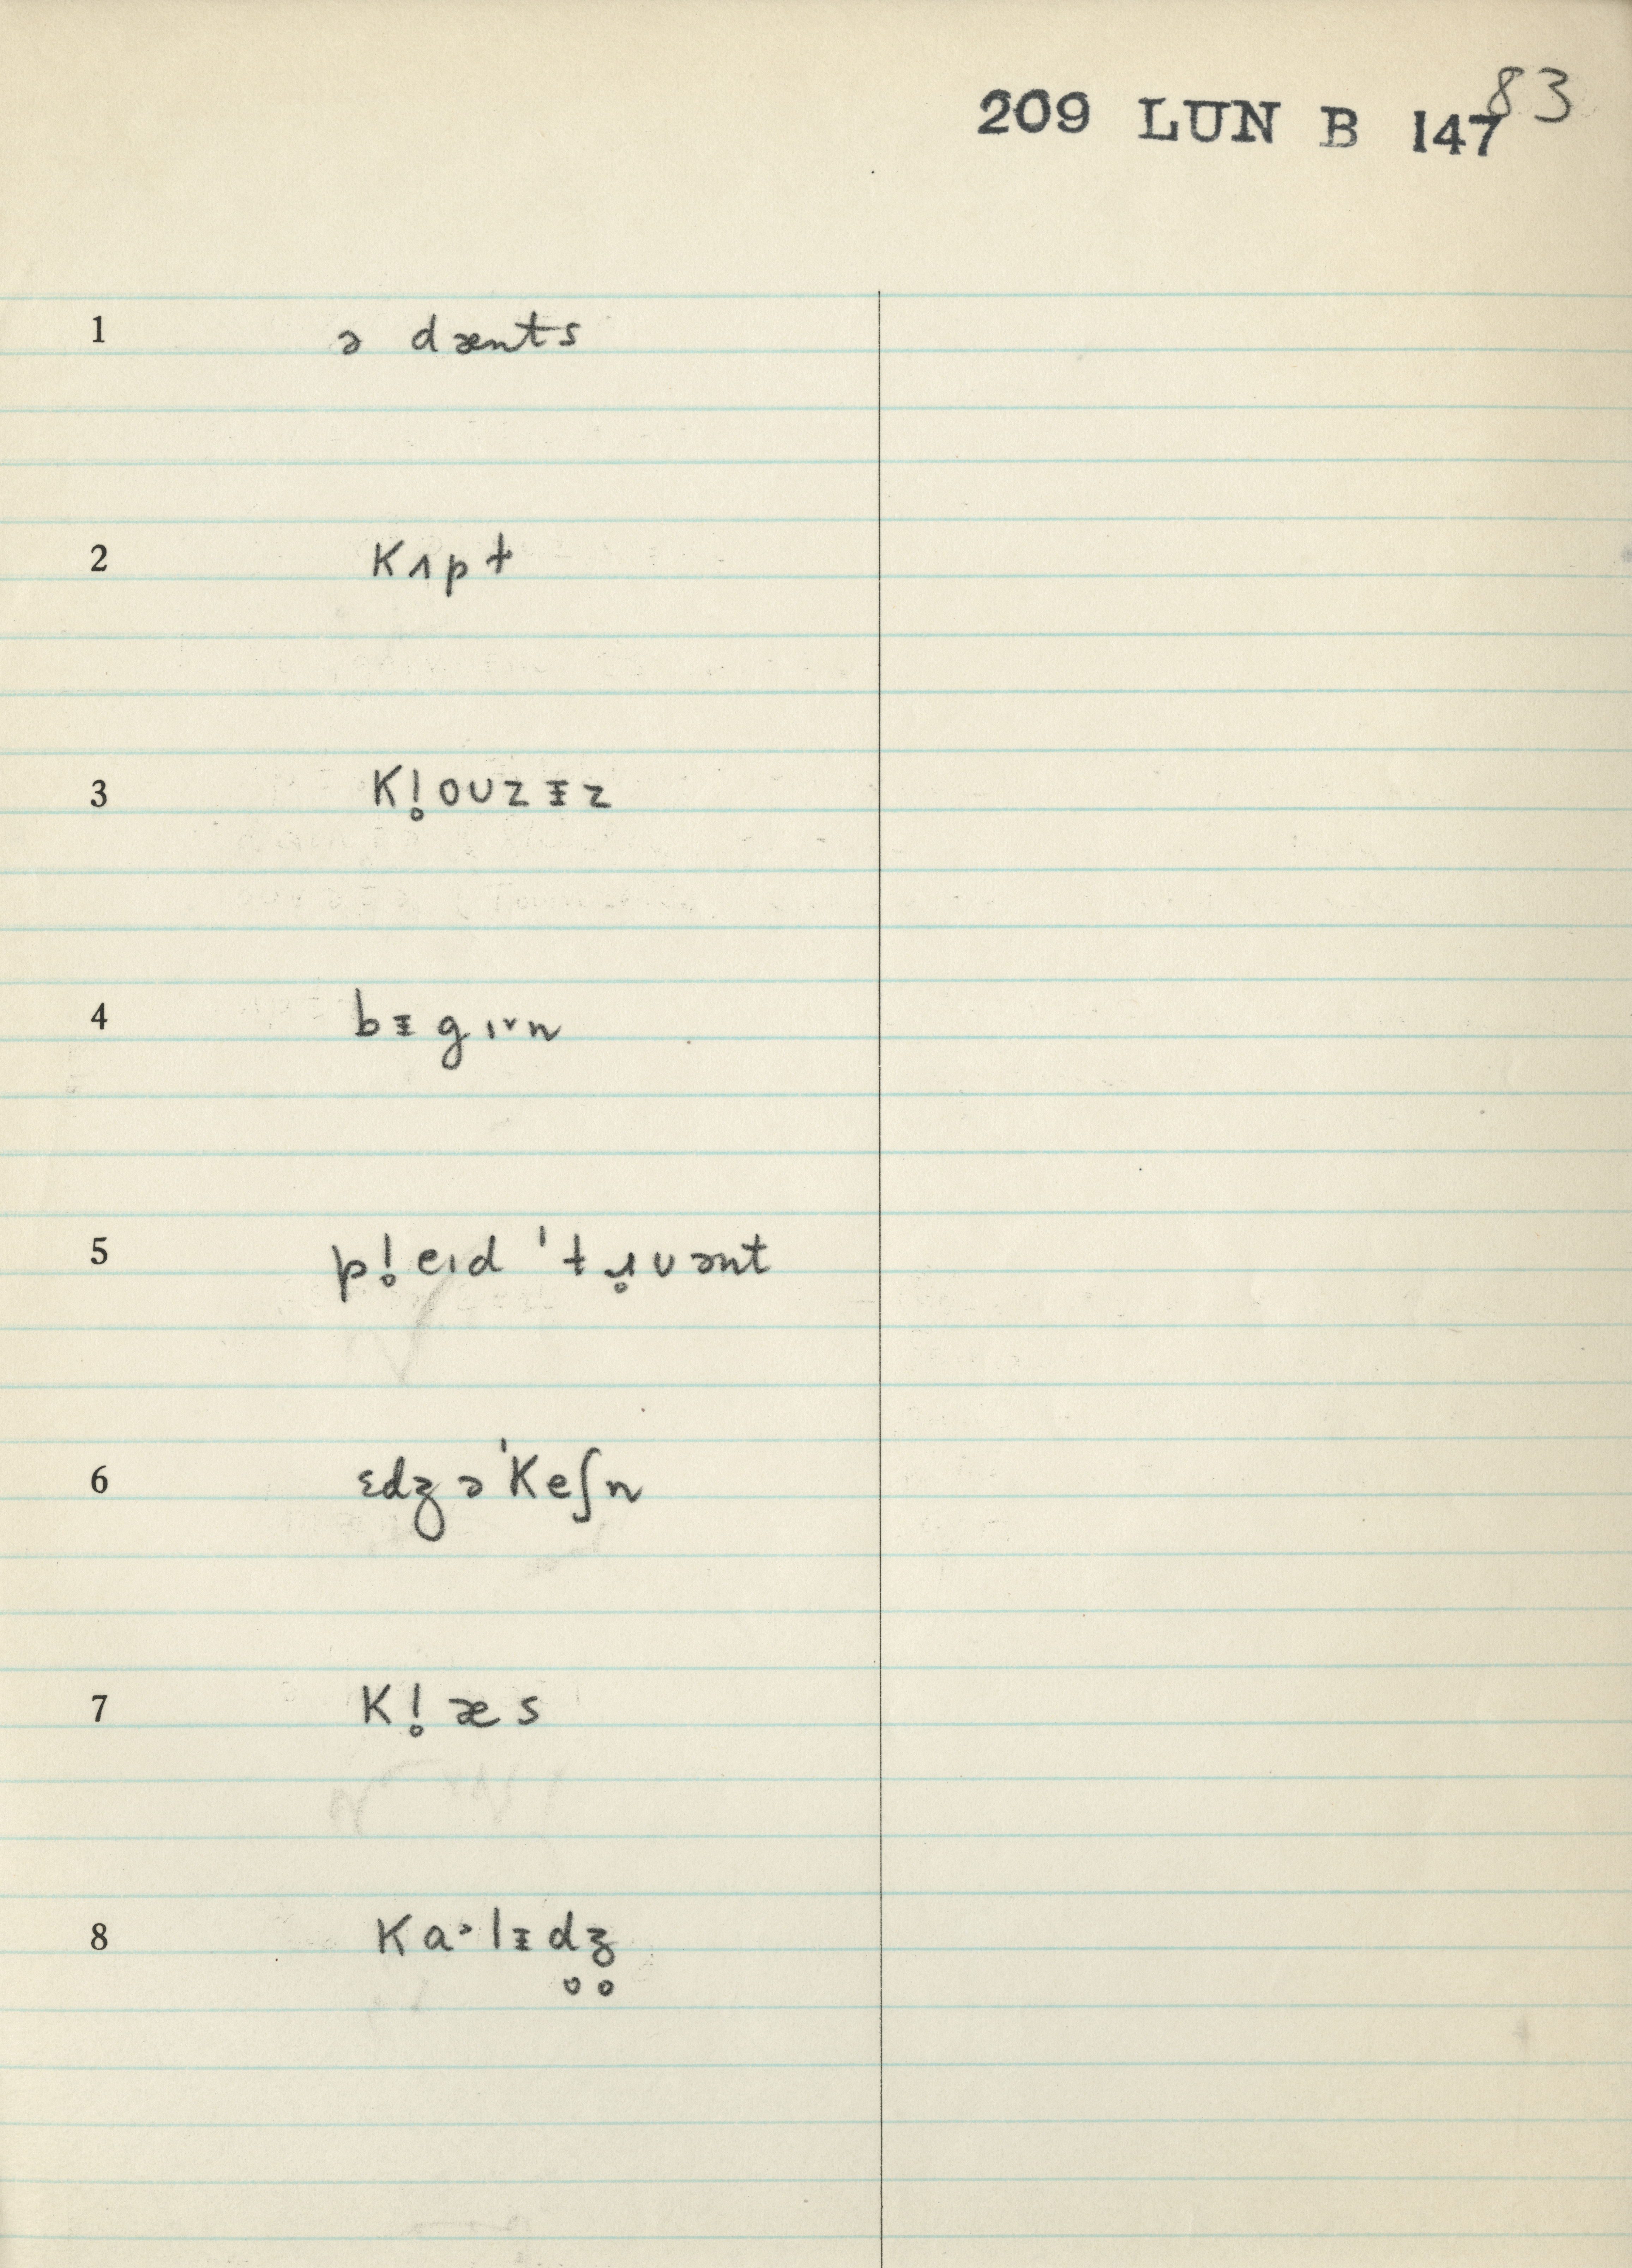 209 LUN B 147 83
1 ə dænts
2 kʌpt
3 kl̥ouzᵻz
4 bᵻgɪˇn
5 pl̥eɪd ˈtɹ̥uənt
6 ɛdʒəˈkeʃn
7 kl̥æs
8 kaᵊlᵻd̥ʒ̥